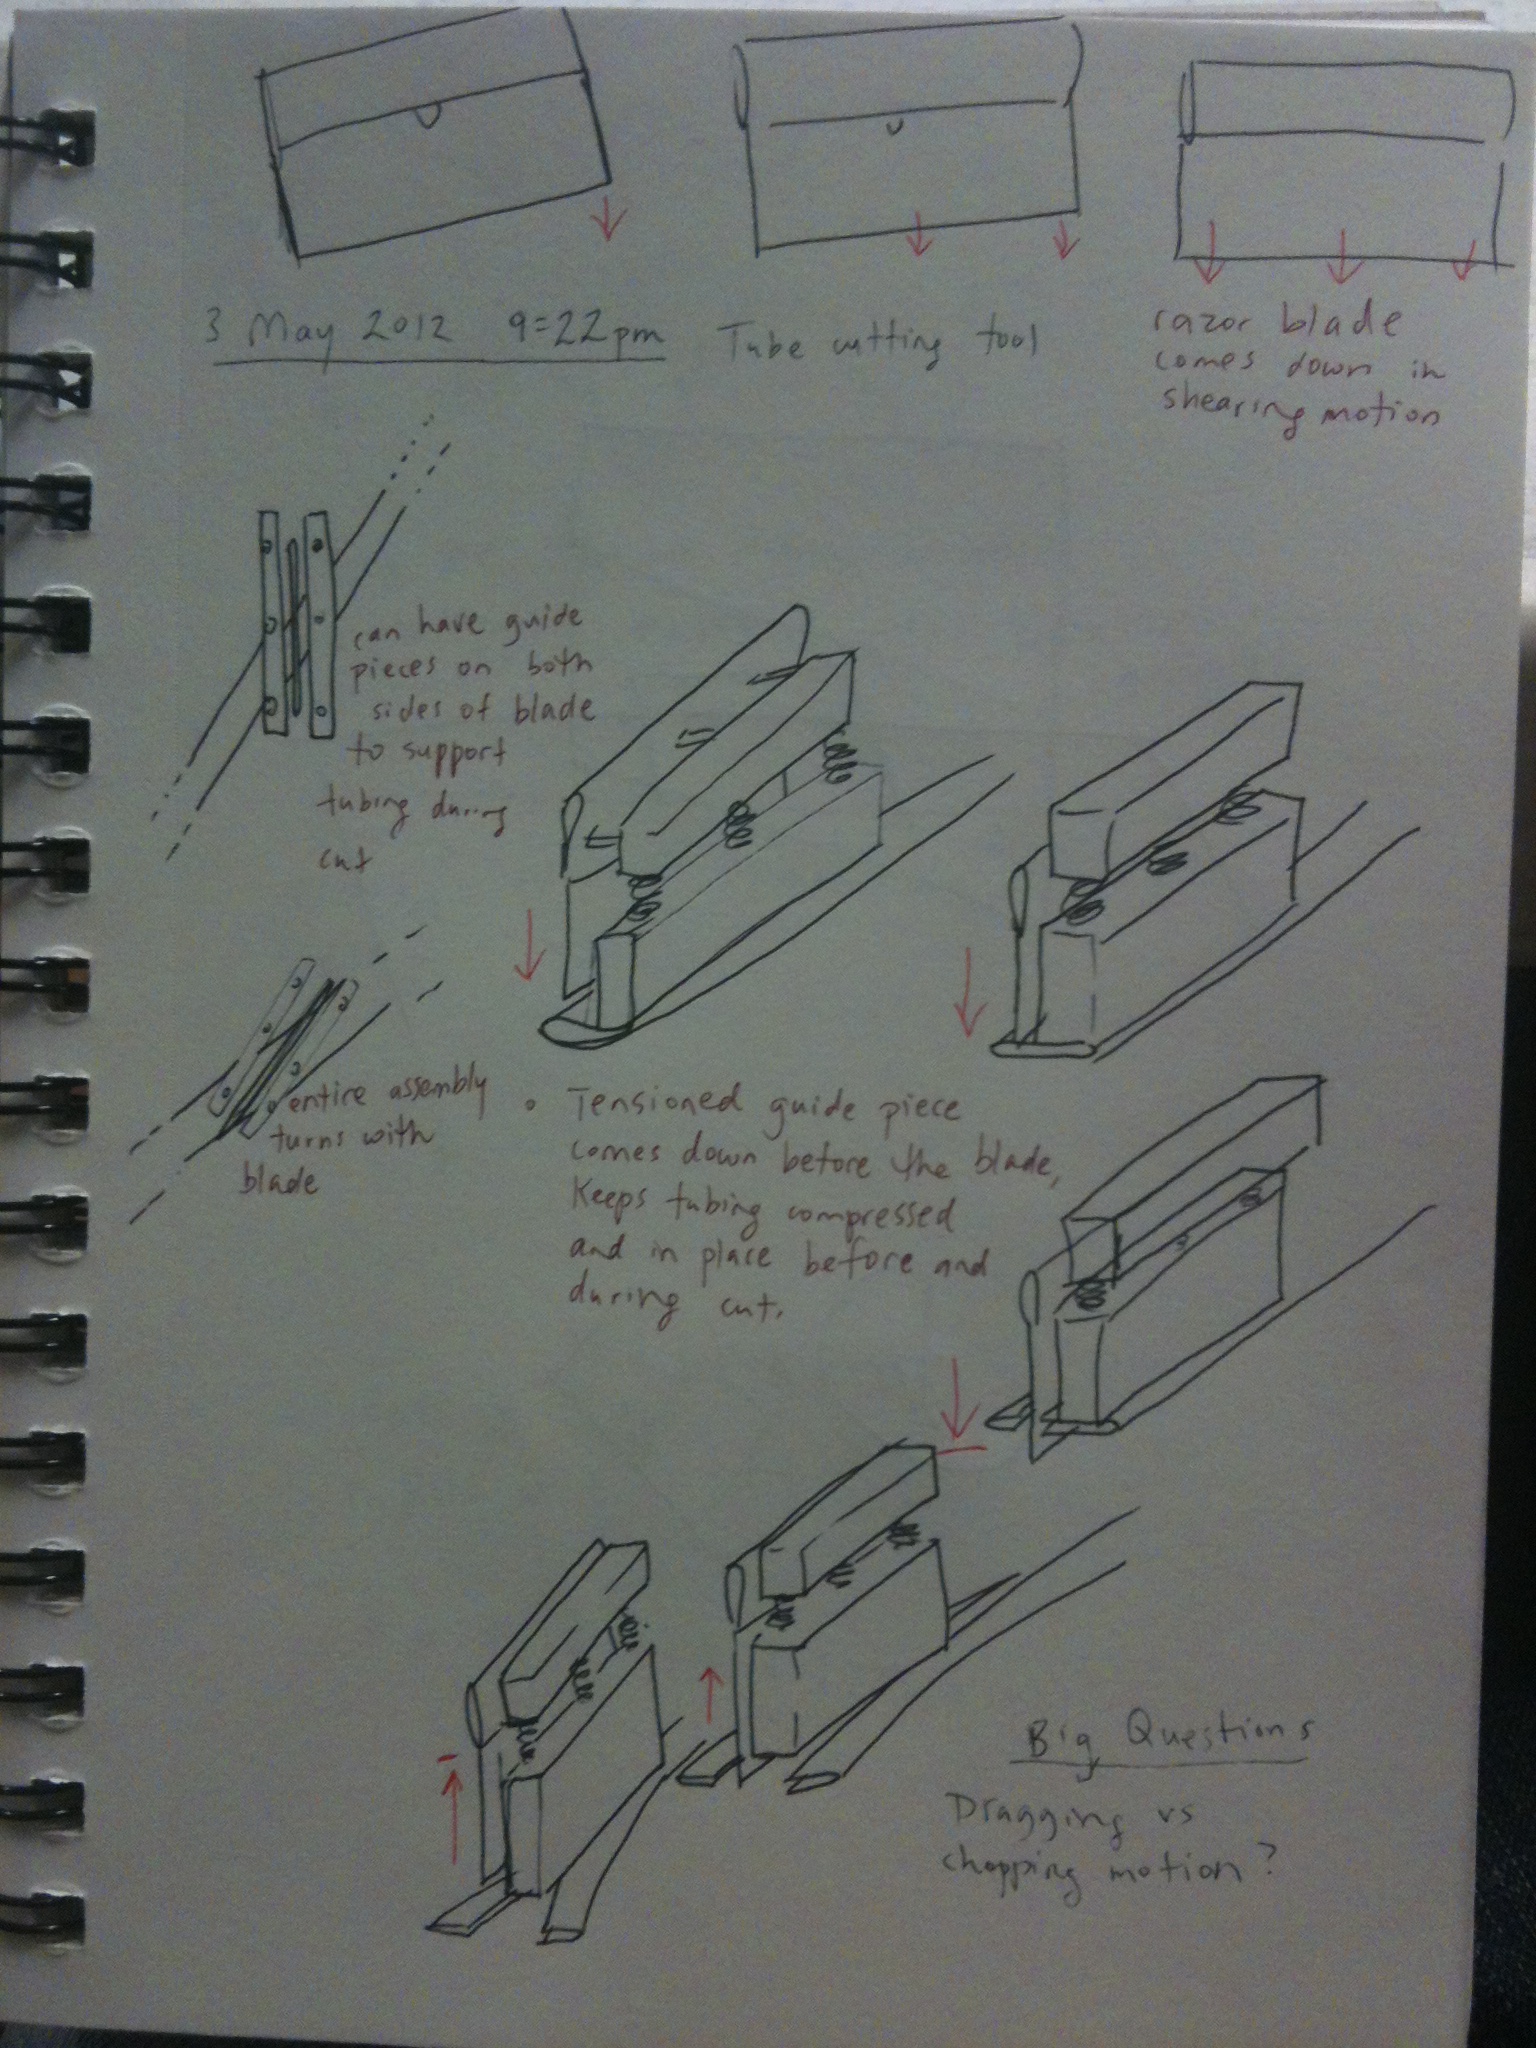 3 May 2012 9:22pm
Tube cutting tool
razor blade
comes down in
shearing motion
can have guide
pieces on both
sides of blade
to support
tubing during
cut
entire assembly
turns with
blade
• Tensioned guide piece
comes down before the blade,
Keeps tubing compressed
and in place before and
during cut.
Big Questions
Dragging vs
chopping motion?